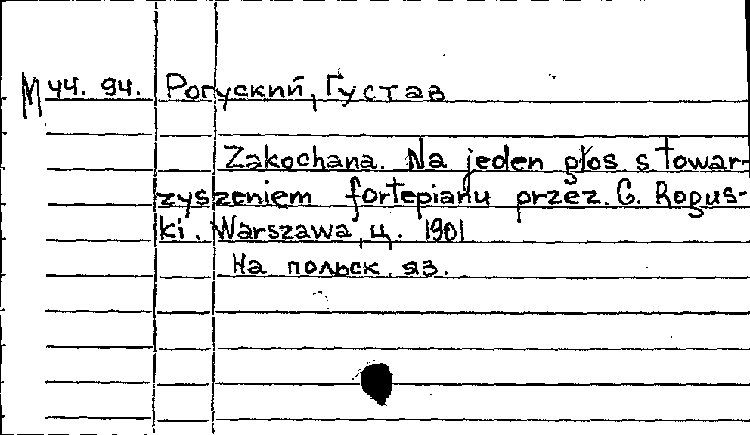 М 44. 94. Рогуский, Густав
Zakochana. Na jeden głos s towar-
zyszeniem fortepianu przez. G. Rogus-
ki. Warszawa, ц. 1901
На польск. яз.